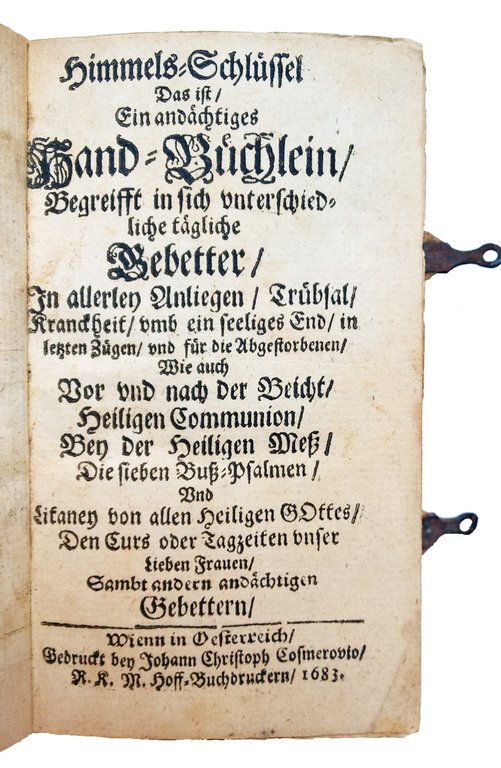 Himmels-Schlüssel
Das ist/
Ein andächtiges
Hand-Büchlein/
Begreifft in sich vnterschied-
liche tägliche
Gebetter/
In allerley Anliegen / Trübsal/
Kranckheit/ vmb ein seeliges End/ in
letzten Zügen/ vnd für die Abgestorbenen/
Wie auch
Vor vnd nach der Beicht/
Heiligen Communion/
Bey der Heiligen Meß/
Die sieben Buß-Psalmen /
Vnd
Litaney von allen Heiligen GOttes/
Den Curs oder Tagzeiten vnser
Lieben Frauen/
Sambt andern andächtigen
Gebettern/
Wienn in Oesterreich/
Gedruckt bey Johann Christoph Cosmerovio/
R. K. M. Hoff-Buchdruckern/ 1683.